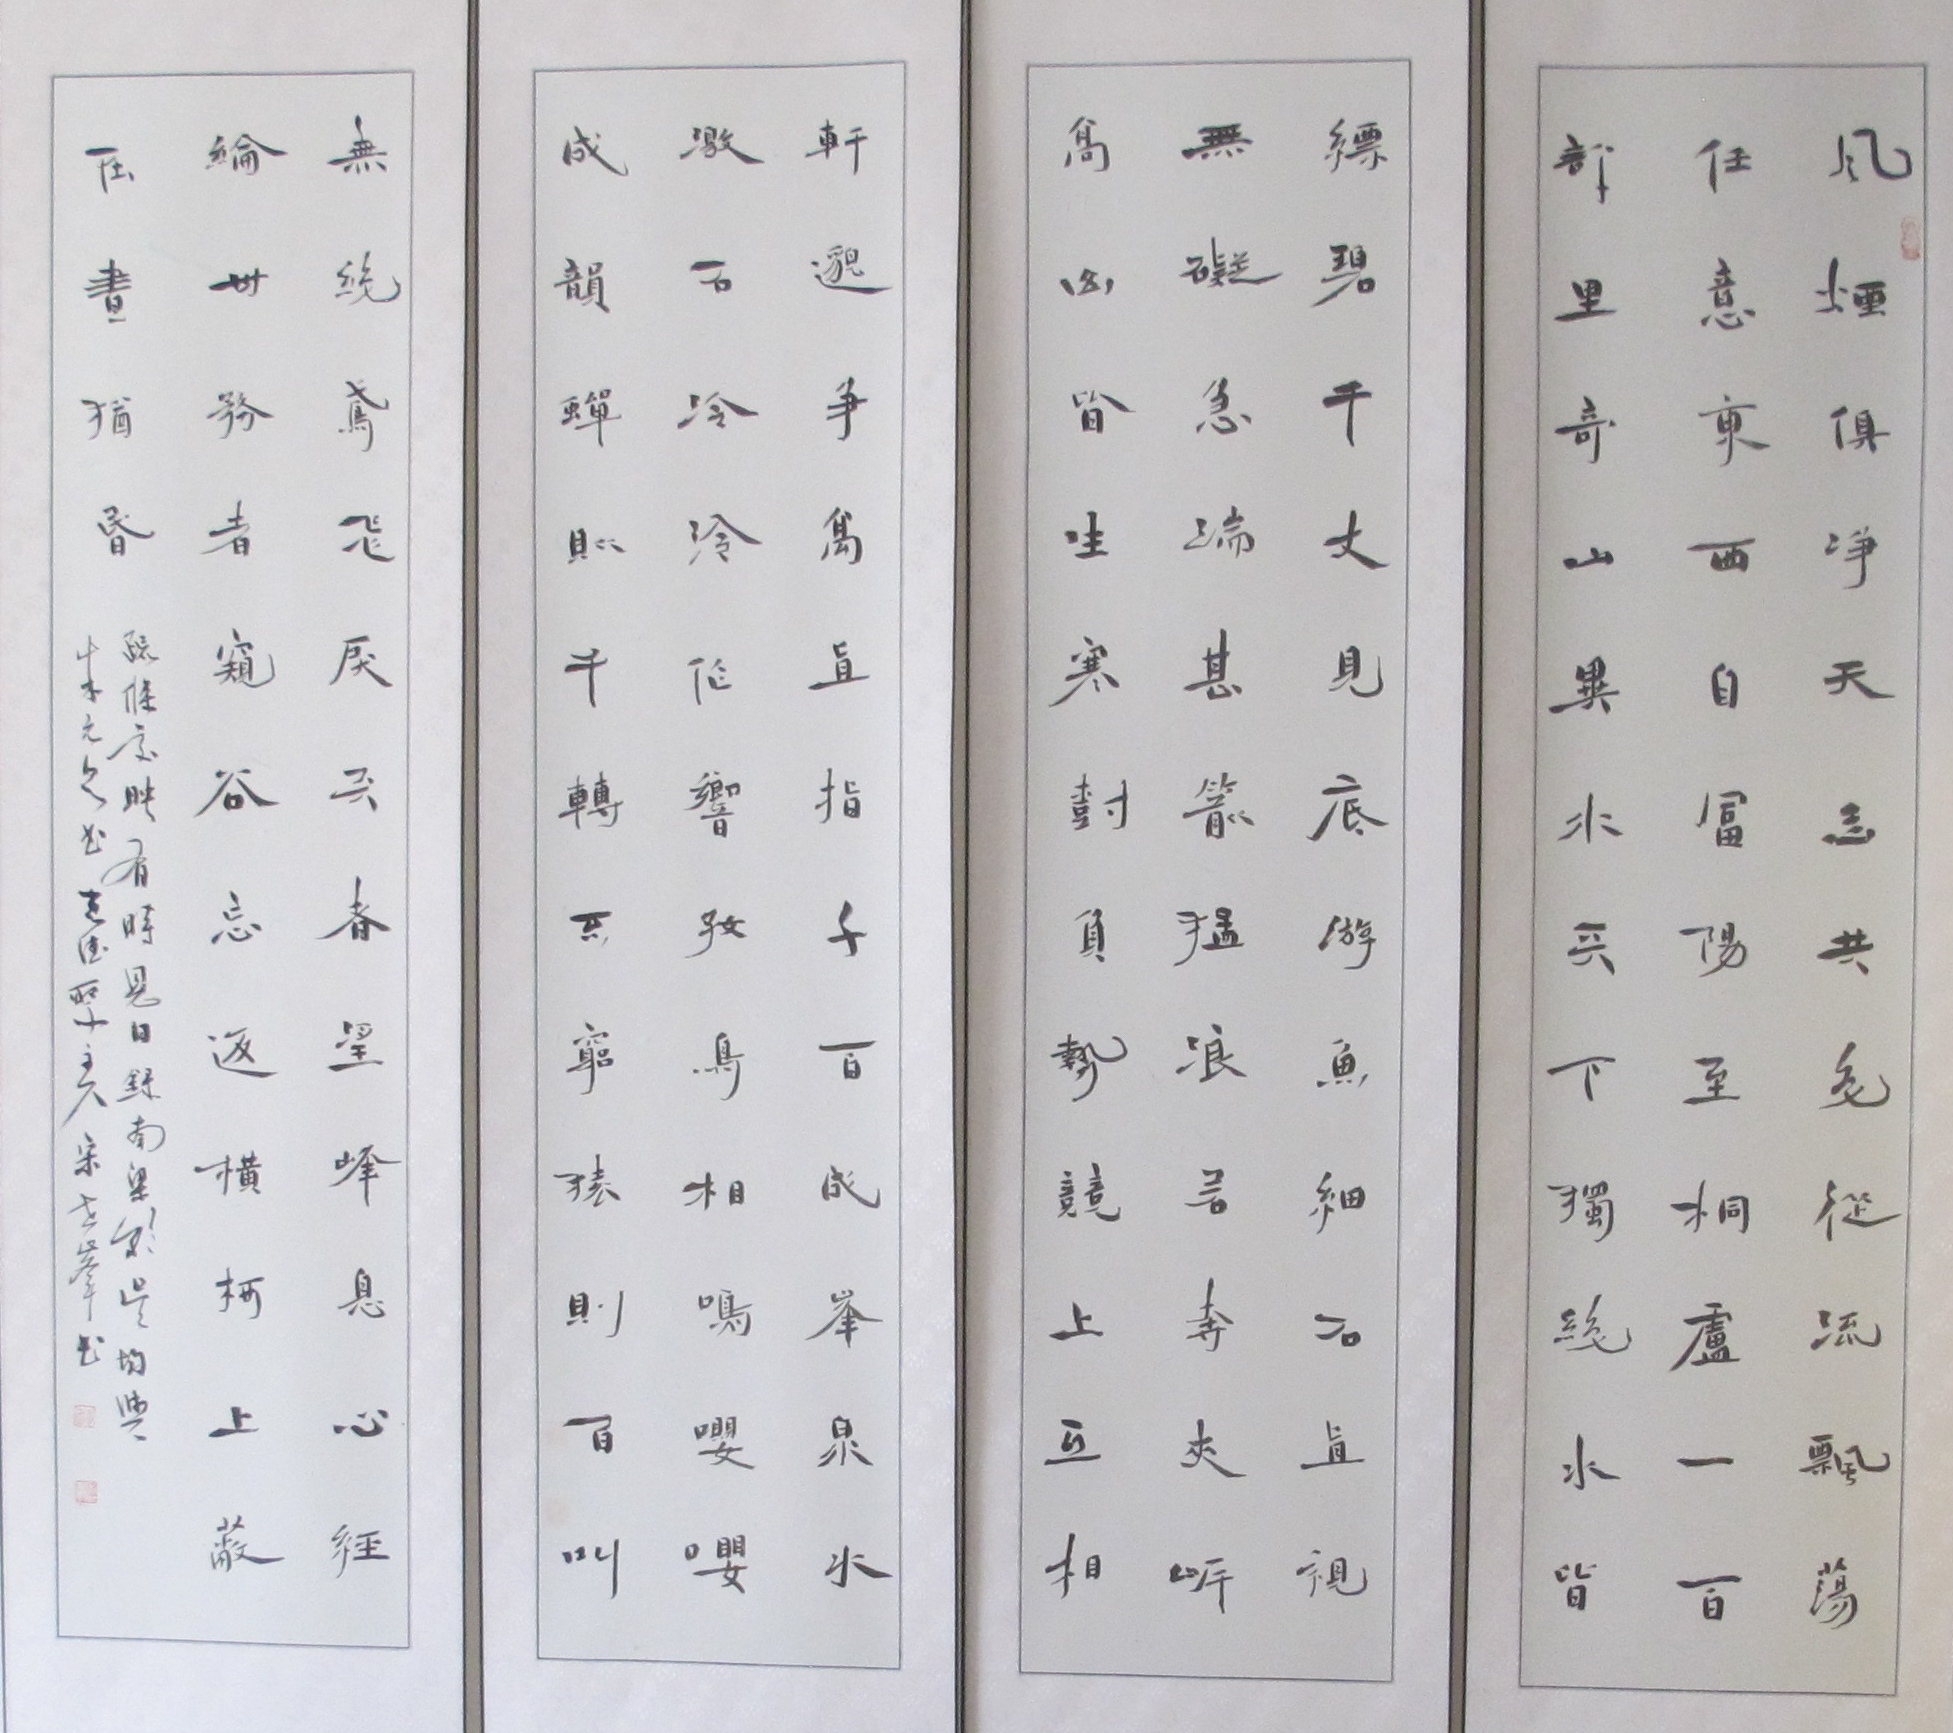 風煙俱淨天山共色從流飄蕩
任意東西自富陽至桐盧一百
許里奇山異水天下獨絕水皆
縹碧千丈見底游魚細石直視
無礙急湍甚箭猛浪若奔夾岸
高山皆生寒樹負勢競上互相
軒邈爭高直指千百成峯泉水
激石泠泠作響好鳥相鳴嚶嚶
成韻蟬則千轉不窮猿則百叫
無絕鳶飛戾天者望峰息心經
綸世務者窺谷忘返橫柯上蔽
在晝猶昏
疏條交映有時見日錄南梁吳均與
朱元思書主人宋峯書